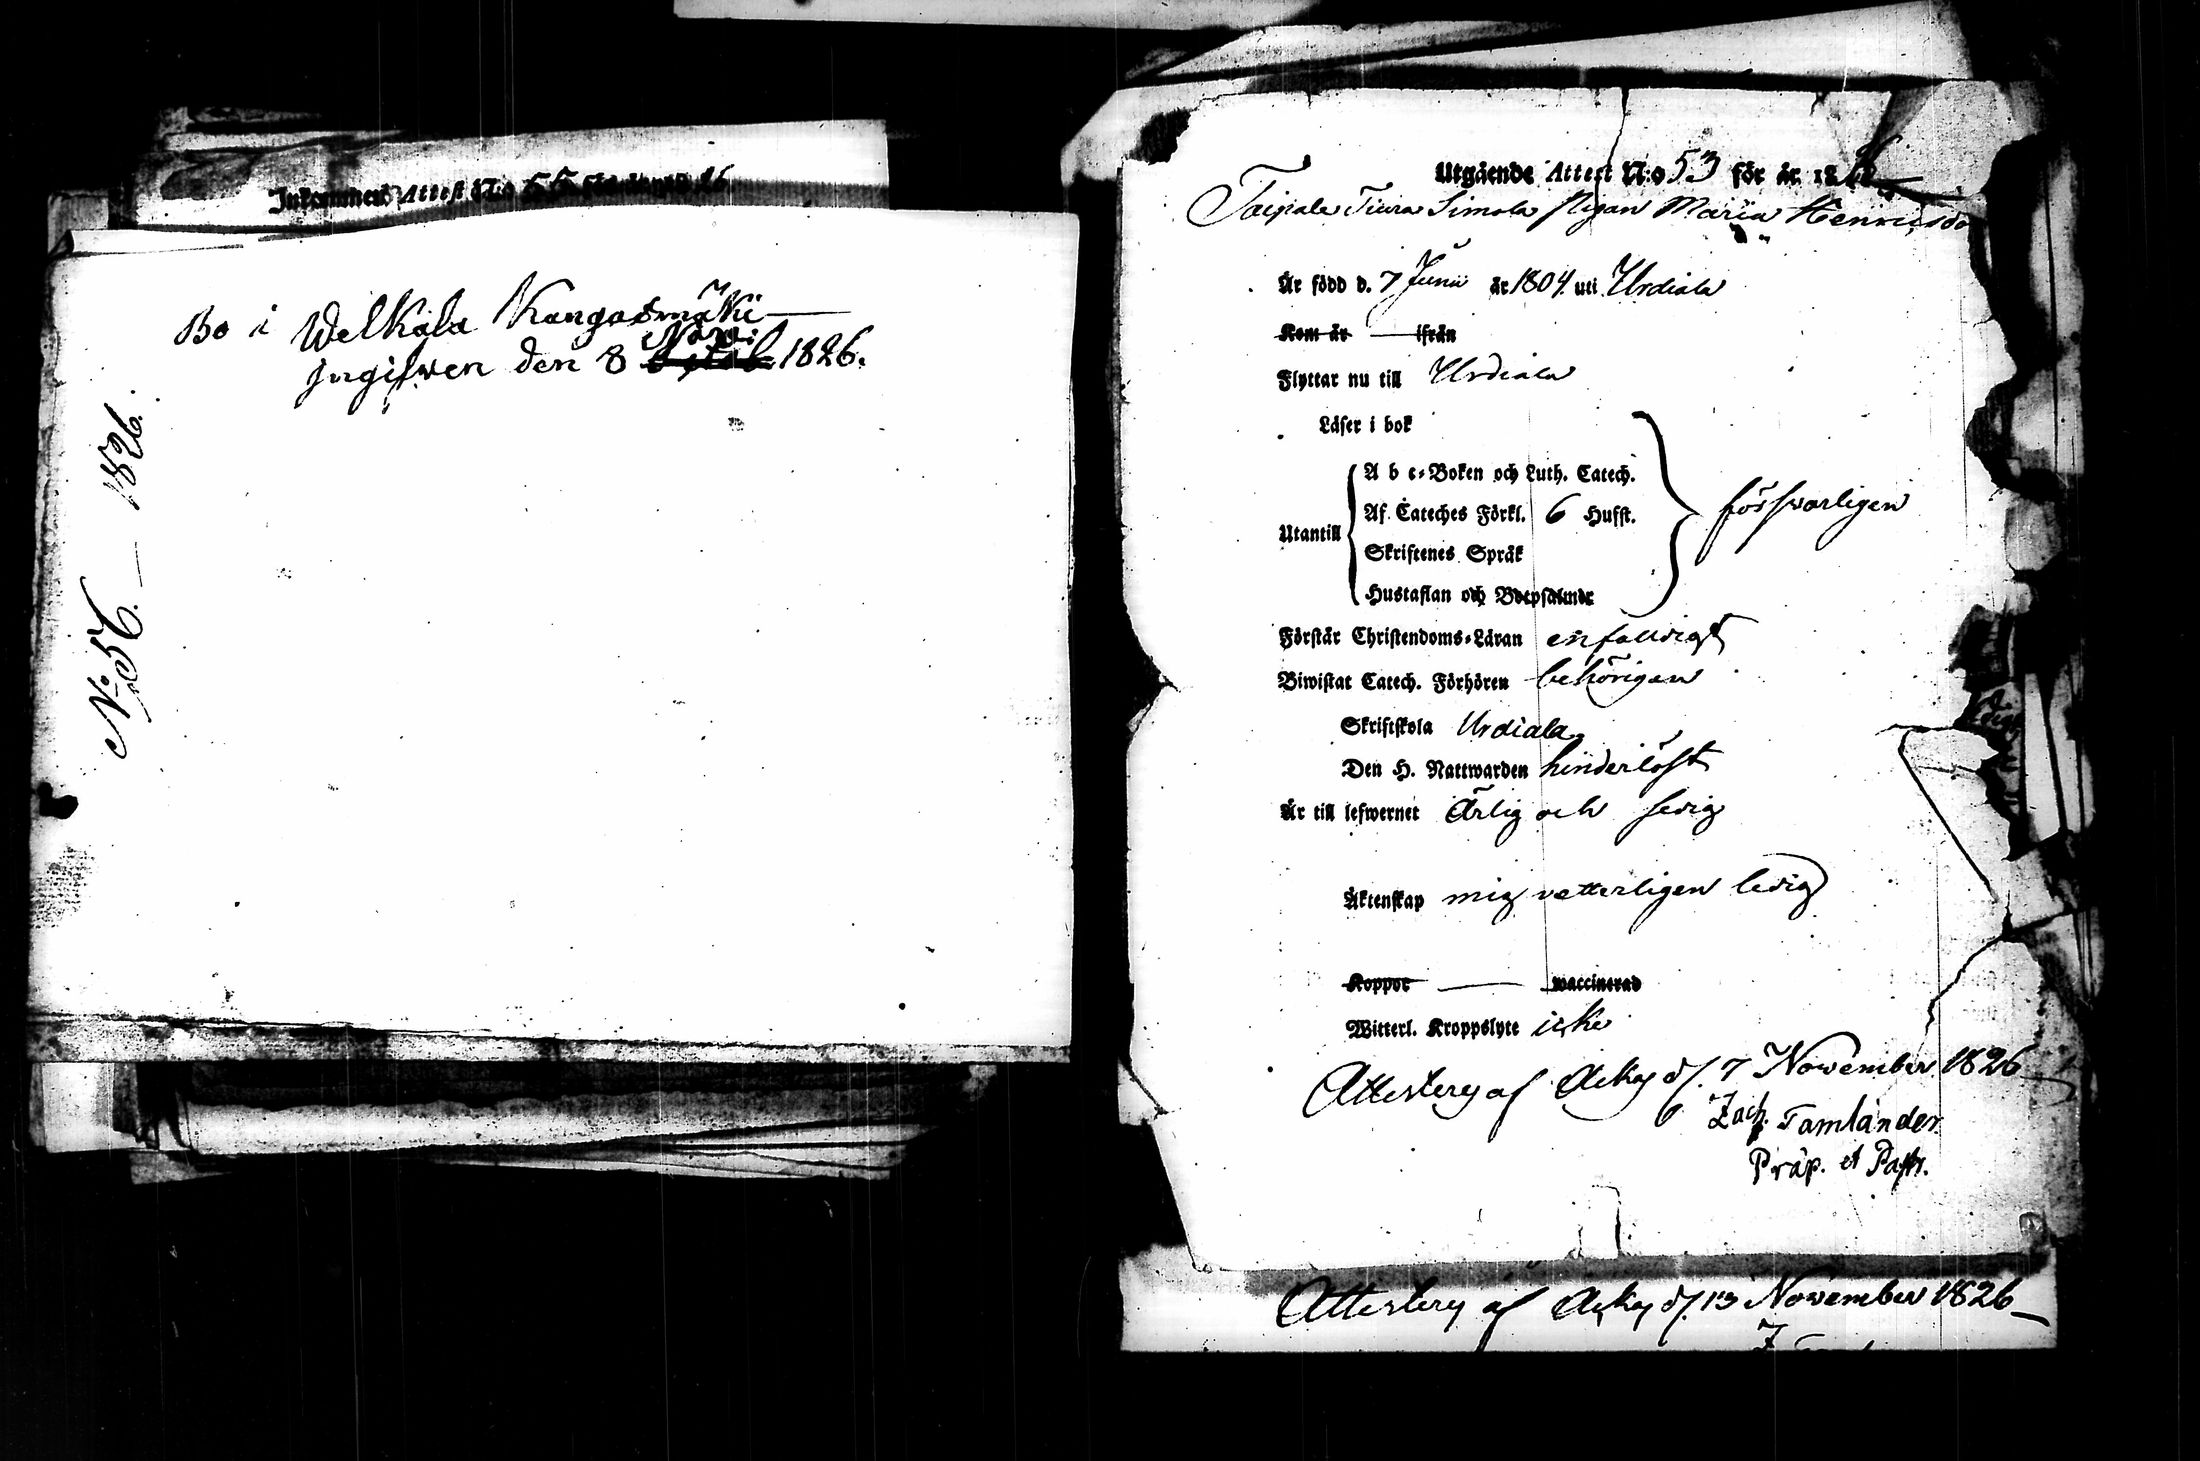 Inkommen Attest N:o 55 26
Bo i Welkala Kangasmäki
Novr:
ingifven den 8 1826.
N:o 56. — 1826.
Utgående Attest N:o 53 för år 18
Taipale Tiura Simola Pigan Maria Henricsdo
Är född d. 7 Junii år 1804. uti Urdiala
Kom år — ifrån
Flyttar nu till Urdiala
Läser i bok
A b c-Boken och Luth. Catech.
Af Cateches Förkl. 6 Hufst.
Utantill
försvarligen
Skriftenes Språk
Hustaflan och Botpsalmer
Förstår Christendoms-Läran enfaldigt
Biwistat Catech. Förhören behörigen
Skriftskola Urdiala
Den H. Nattwarden hinderlöst
Är till lefwernet ärlig och sedig
Äktenskap mig vetterligen ledig
Koppor — waccinerad
Witterl. Kroppslyte icke
Attesterg af Acka d. 7 November 1826
Zach. Tamlander
Präp. et Past.
Attesterg af Acka d. 13 November 1826